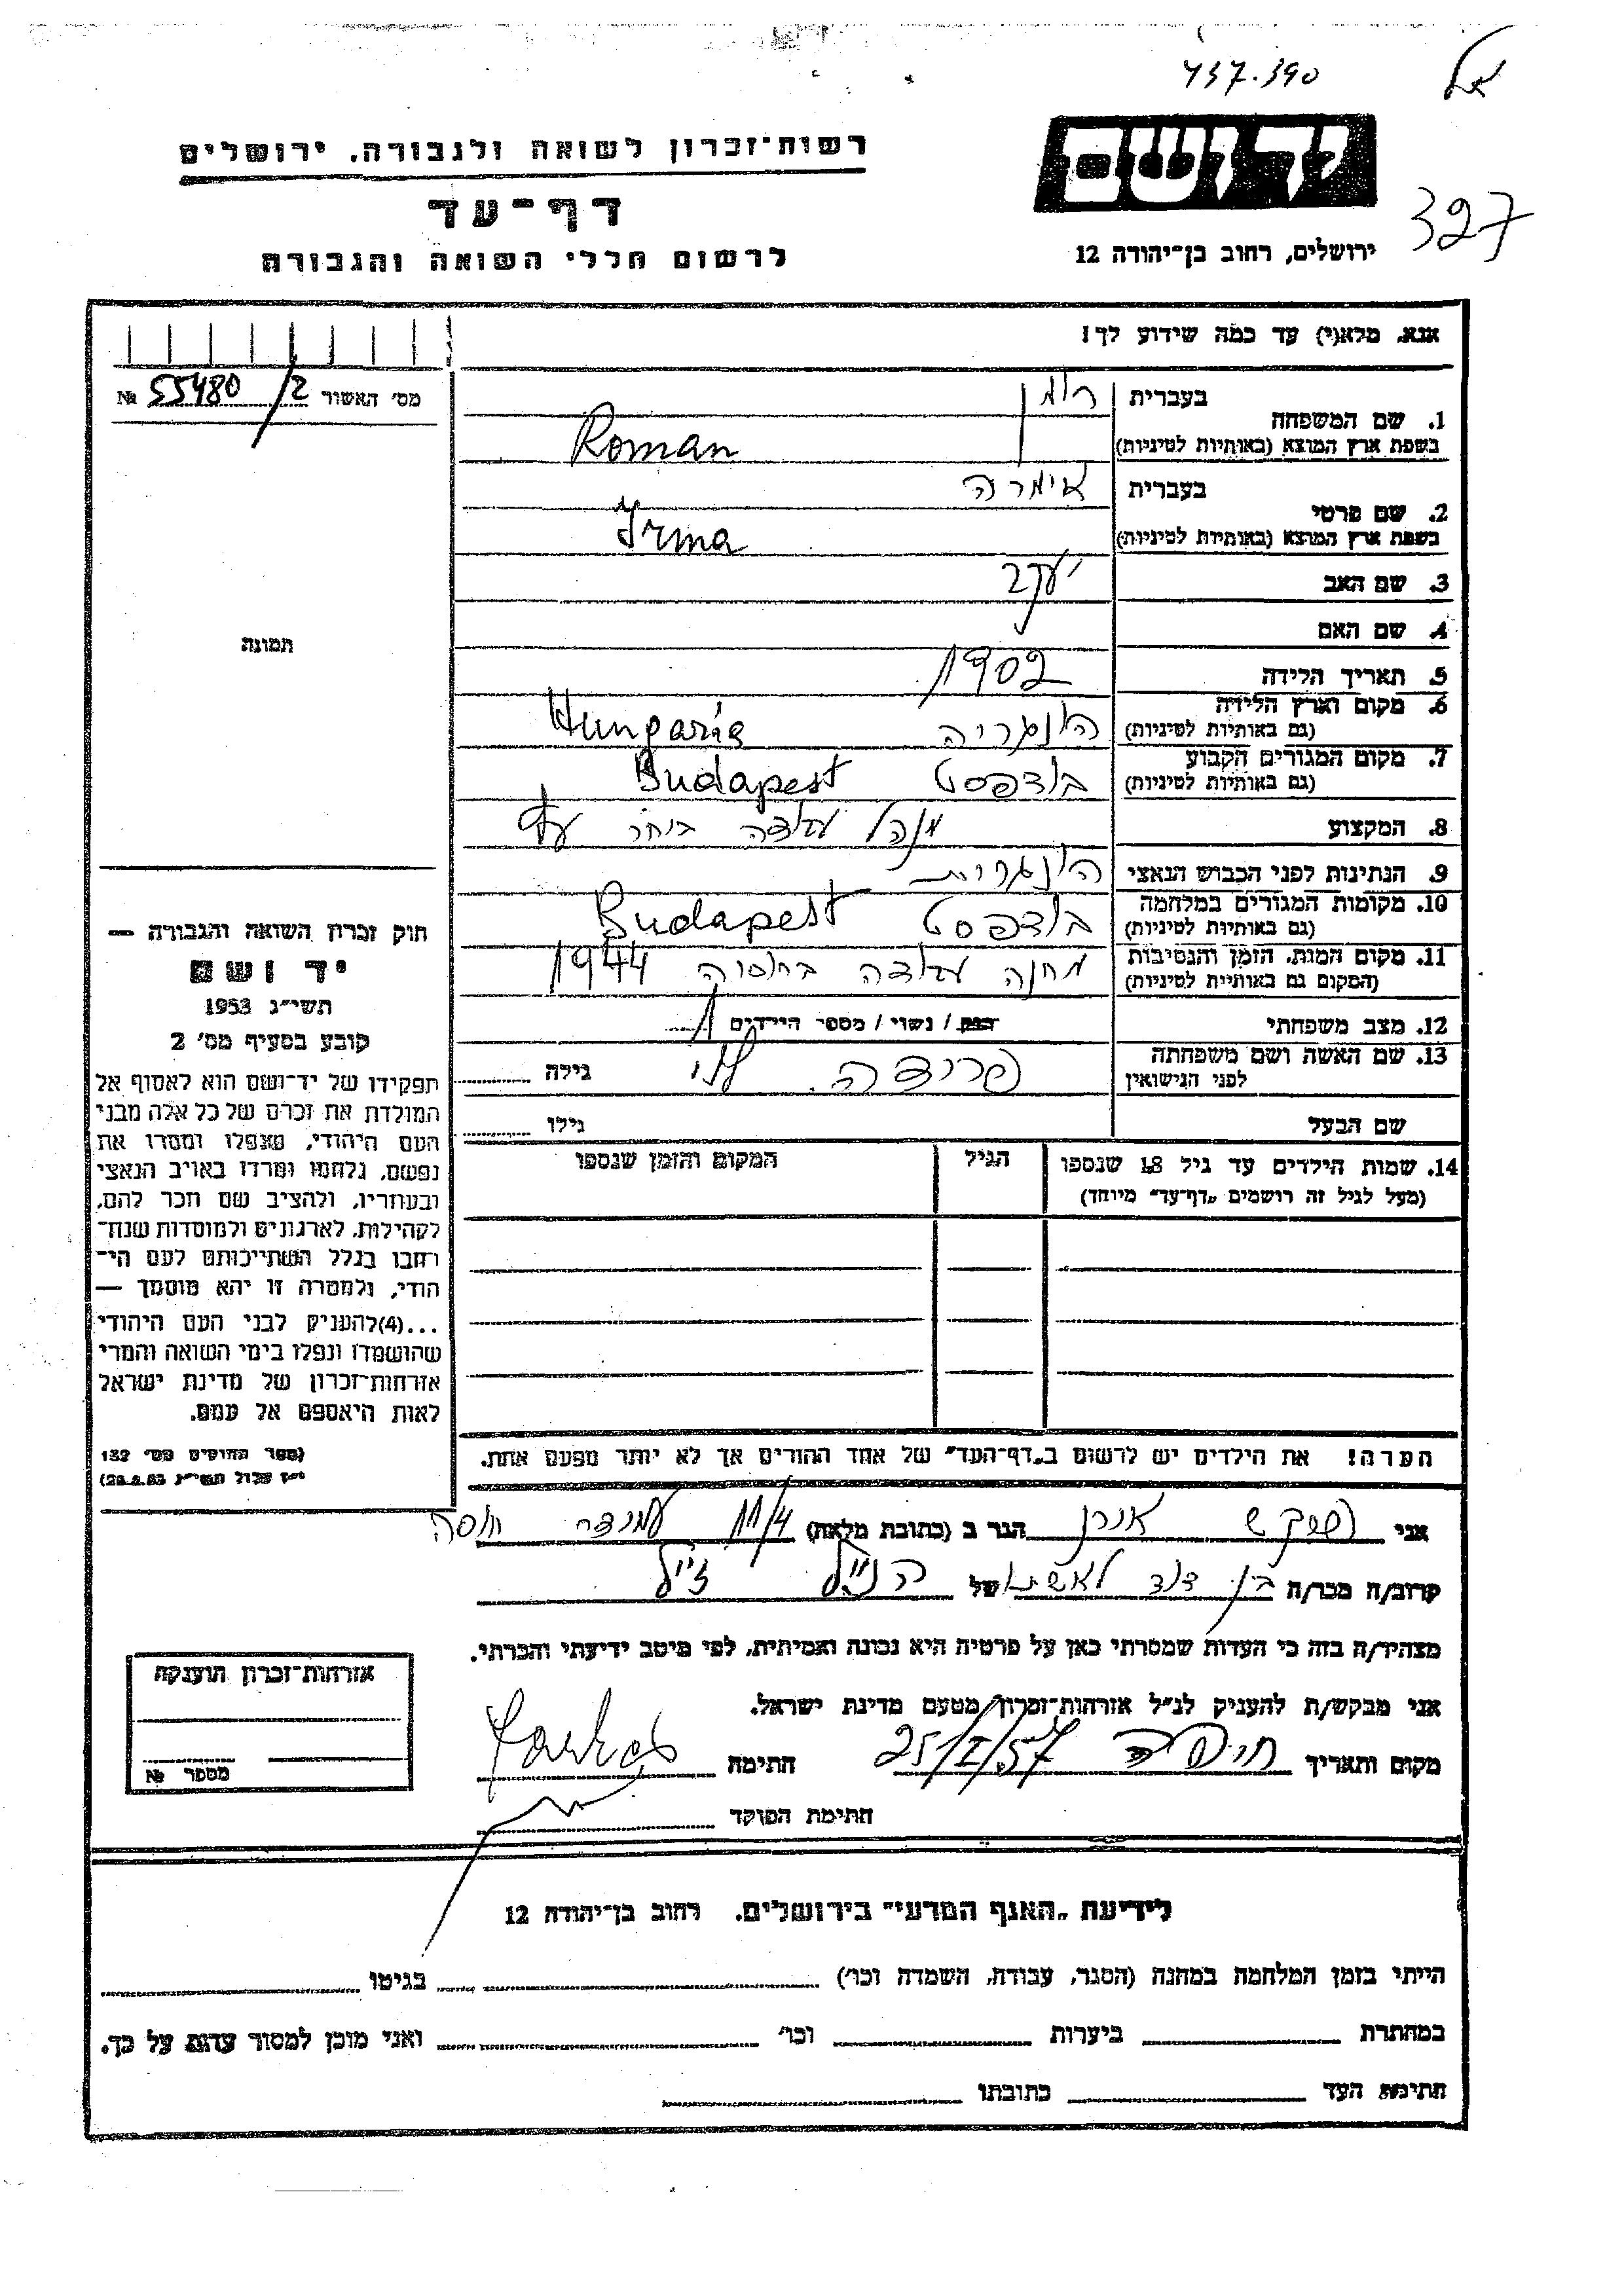 437.390
רשות־זכרון לשואה ולגבורה, ירושלים
דף־עד
לרשום חללי השואה והגבורה
יד ושם
327
ירושלים, רחוב בן־יהודה 12
אנא, מלא(י) עד כמה שידוע לך!
מס׳ האשור 55480/2 №
1. שם המשפחה
בעברית רומן
בשפת ארץ המוצא (באותיות לטיניות) Roman
2. שם פרטי
בעברית אימרה
בשפת ארץ המוצא (באותיות לטיניות) Irma
3. שם האב יעקב
4. שם האם
5. תאריך הלידה 1902
6. מקום וארץ הלידה הונגריה Hungaria
(גם באותיות לטיניות)
7. מקום המגורים הקבוע בודפסט Budapest
(גם באותיות לטיניות)
8. המקצוע מנהל עבודה
9. הנתינות לפני הכבוש הנאצי הונגרית
10. מקומות המגורים במלחמה בודפסט Budapest
(גם באותיות לטיניות)
11. מקום המות, הזמן והנסיבות מחנה עבודה ברוסיה 1944
(המקום גם באותיות לטיניות)
12. מצב משפחתי רווק / נשוי / מספר הילדים 1
13. שם האשה ושם משפחתה פרידה לוי גילה
לפני הנישואין
שם הבעל גילו
14. שמות הילדים עד גיל 18 שנספו הגיל המקום והזמן שנספו
(מעל לגיל זה רושמים „דף־עד״ מיוחד)
הערה! את הילדים יש לרשום ב„דף־העד״ של אחד ההורים אך לא יותר מפעם אחת.
תמונה
חוק זכרון השואה והגבורה —
יד ושם
תשי״ג 1953
קובע בסעיף מס׳ 2
תפקידו של יד־ושם הוא לאסוף אל
המולדת את זכרם של כל אלה מבני
העם היהודי, שנפלו ומסרו את
נפשם, נלחמו ומרדו באויב הנאצי
ובעוזריו, ולהציב שם וזכר להם,
לקהילות, לארגונים ולמוסדות שנח־
רבו בגלל השתייכותם לעם הי־
הודי, ולמטרה זו יהא מוסמך —
...(4) להעניק לבני העם היהודי
שהושמדו ונפלו בימי השואה והמרי
אזרחות־זכרון של מדינת ישראל
לאות היאספם אל עמם.
(ספר החוקים מס׳ 132
י״ז אלול תשי״ג 28.8.53)
אני פרקש אורן הגר ב (כתובת מלאה) 11/4 עמידר חיפה
קרוב/ה מכר/ה בן דוד לאשתו של הנ״ל ז״ל
מצהיר/ה בזה כי העדות שמסרתי כאן על פרטיה היא נכונה ואמיתית, לפי מיטב ידיעתי והכרתי.
אני מבקש/ת להעניק לנ״ל אזרחות־זכרון מטעם מדינת ישראל.
מקום ותאריך חיפה 25/I/57 חתימה Farkas
חתימת הפוקד
אזרחות־זכרון הוענקה
מספר №
לידיעת „האגף המדעי״ בירושלים, רחוב בן־יהודה 12
הייתי בזמן המלחמה במחנה (הסגר, עבודה, השמדה וכו׳) בגיטו
במחתרת ביערות וכו׳ ואני מוכן למסור עדות על כך.
חתימת העד כתובתו